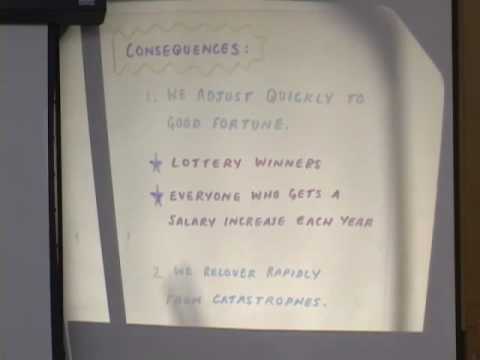 CONSEQUENCES:
1. WE ADJUST QUICKLY TO
GOOD FORTUNE.
LOTTERY WINNERS
EVERYONE WHO GETS A
SALARY INCREASE EACH YEAR
2. WE RECOVER RAPIDLY
FROM CATASTROPHES.